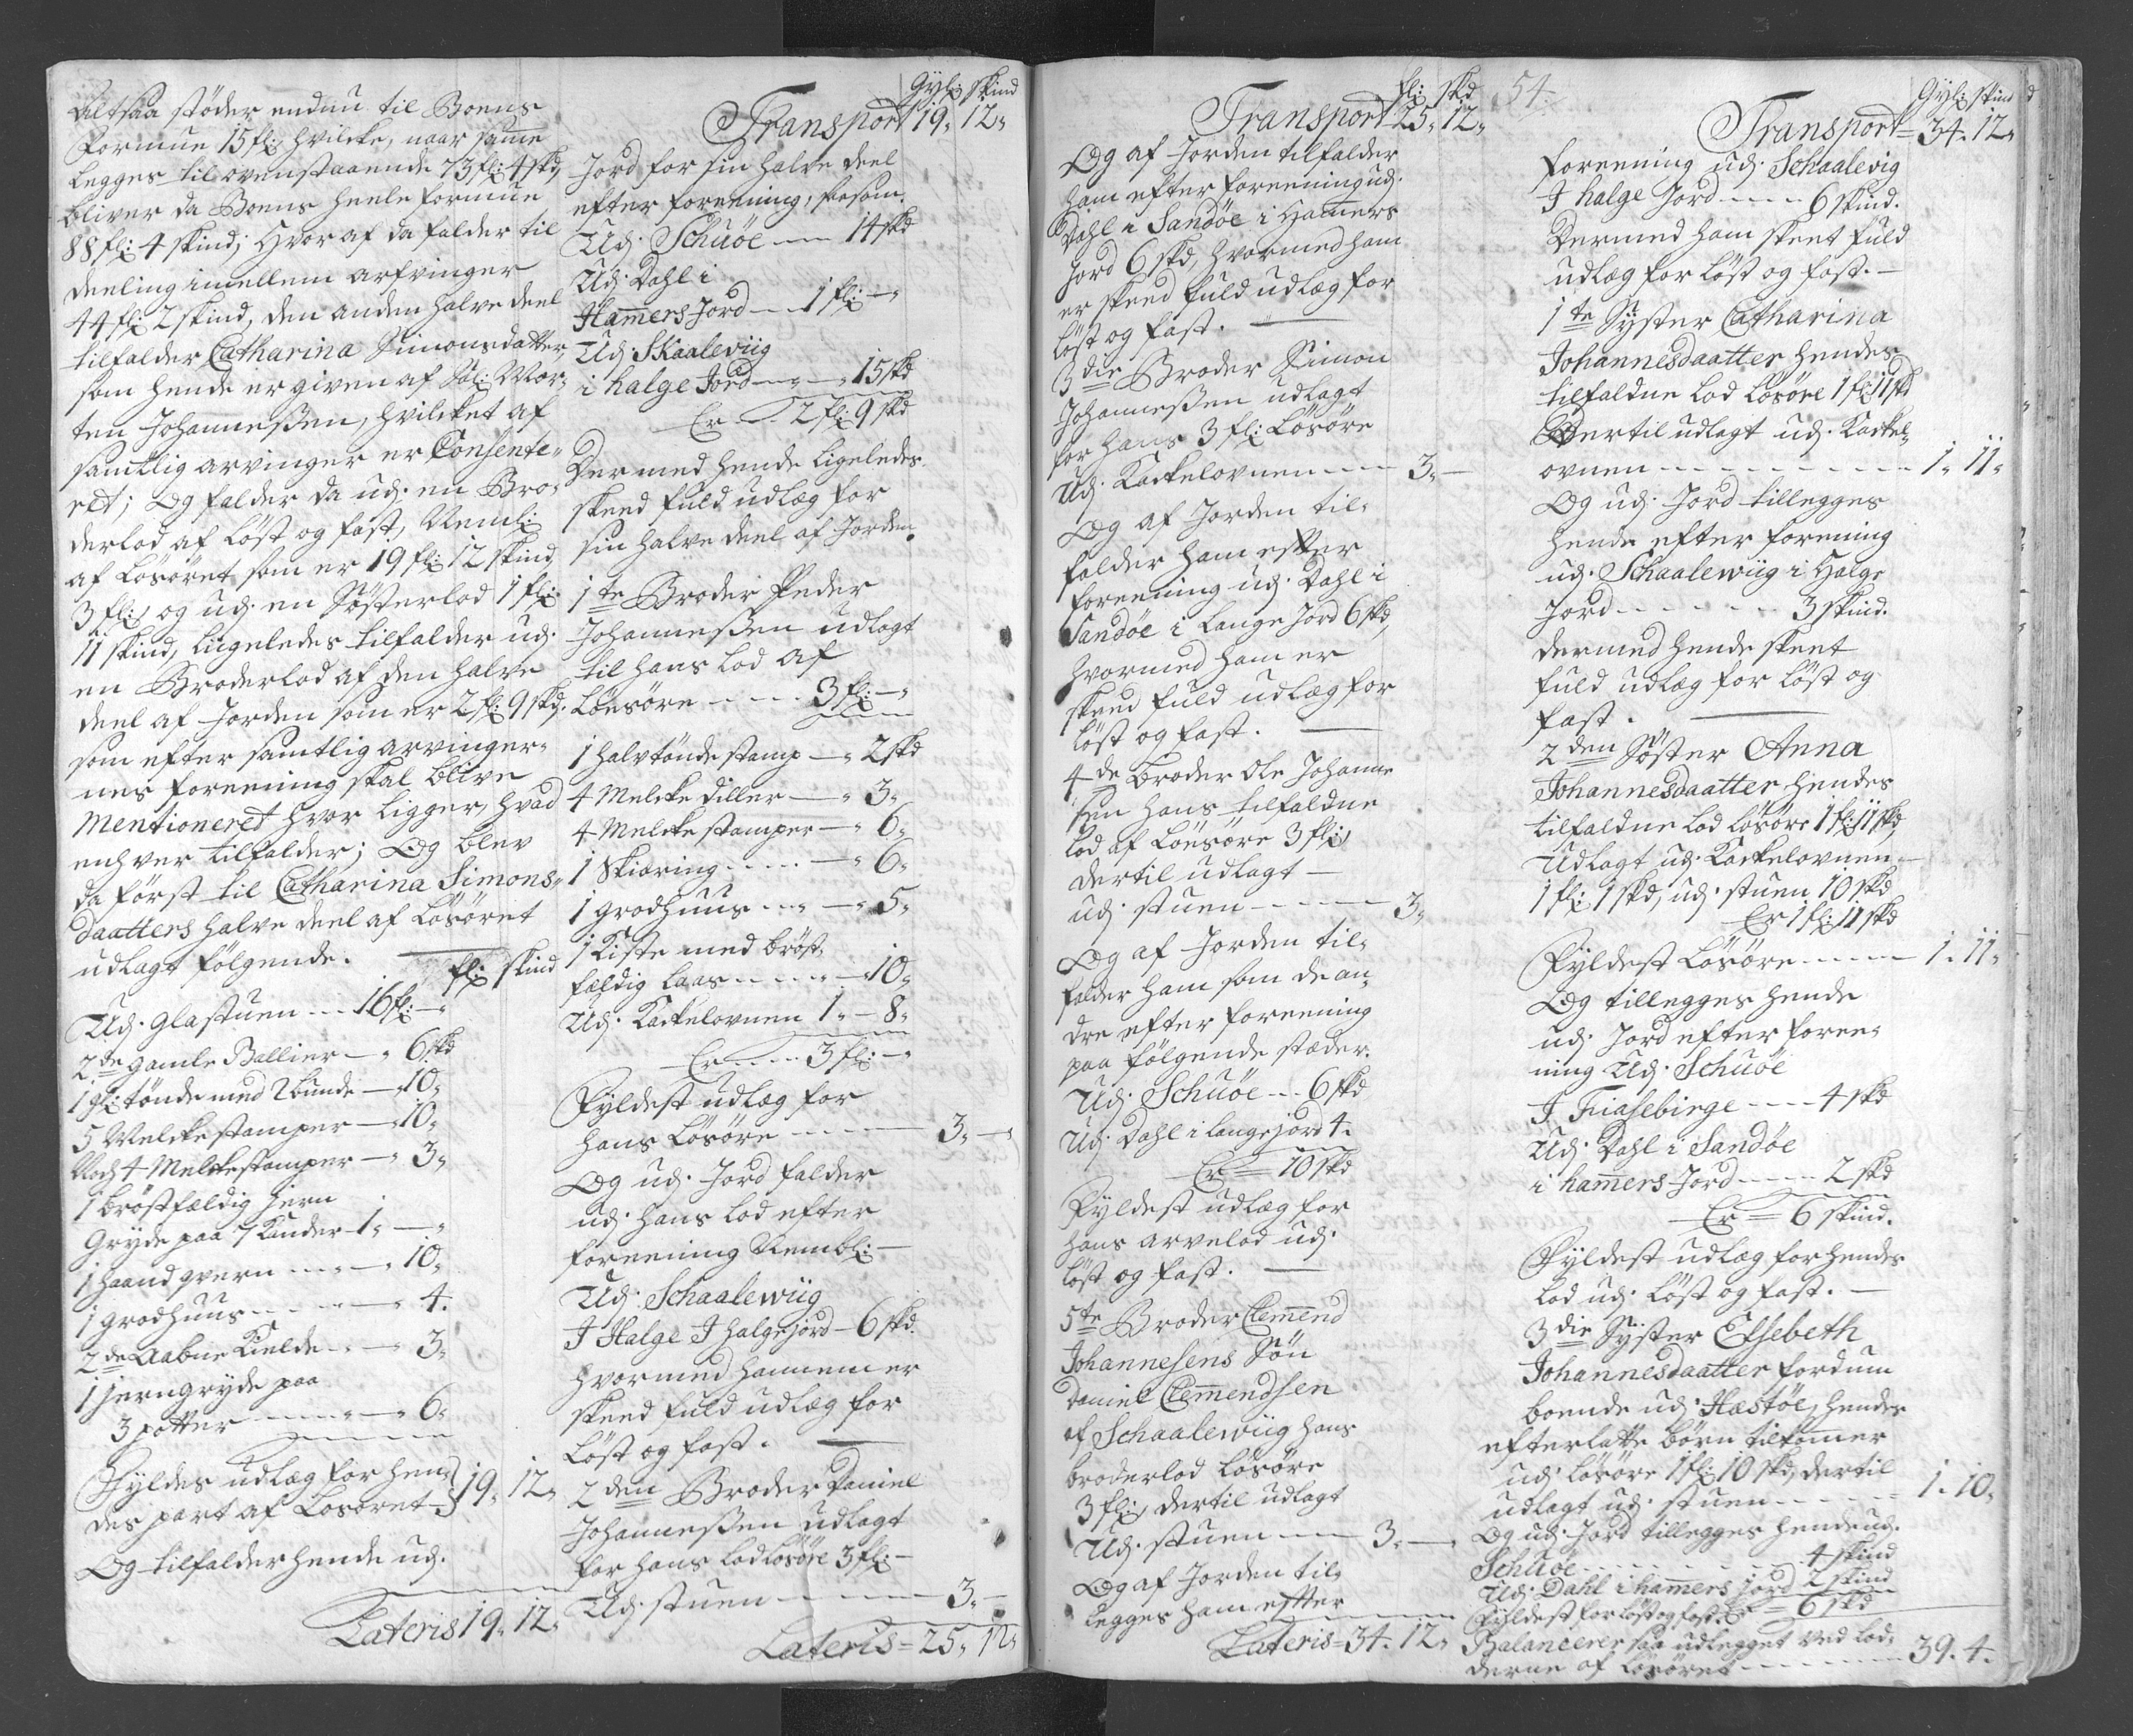 Altsaa støder endnu til Boens
Formue 15 fl: hvilcke, naar samme
legges til ovenstaaende 73 fl: 4 skd,
bliver da Boens heele formue
88 fl: 4 skind; Hvor af da falder til
deeling imellem arfvinger
44 fl: 2 skind, den anden halve deel
tilfalder Catharina Simonsdatter,
som hende er given af Sal: Mor-
ten Johannessen, hvilcket af
samtlig arvinger er Consente-
ret; Og falder da udj en Bro-
derlod af løst og fast, Neml:
af Løsøret som er 19 fl: 12 skind,
3 fl: og udj en Søsterlod 1 fl:
11 skind, ligeledes tilfalder udj
en Broderlod af den halve
deel af Jorden som er 2 fl: 9 skd.
som efter samtlig arvinger-
nes foreening skal blive
Mentioneret hvor ligger, hvad
enhver tilfalder; Og blev
da først til Catharina Simons-
daatters halve deel af Løsøret
udlagt følgende.
fl: skind
Udj glastuen --- 16 fl: —
2de gamle Ballier — " 6 skd
1 gl: tønde med 2 bunde — 10"
5 Melckestamper — " 10"
Noch 4 Melckestamper — " 3"
1 brøstfældig Jern
Gryde paa 7 Kander - 1" — "
1 haand qvern --- — " 10"
1 grodhuus --- — " 4.
2de Aabne Kielde — " 3"
1 jerngryde paa
3 potter --- — " 6"
Fyldes udlæg for hen-
des part af Løsøret } 19" 12"
Og tilfalder hende udj
Lateris 19" 12"
Gyl: skind
Transport 19" 12"
Jord for sin halve deel
efter foreening, saasom.
Udj Schuøe — 14 skd
Udj Dahl i
Hamers Jord — 1 fl: — "
Udj Skaaleviig
i halge Jord — " — 15 skd
Er — 2 fl: 9 skd
Dermed hende ligeledes
skeed fuld udlæg for
sin halve deel af Jorden.
1te Broder Peder
Johannessen udlagt
til hans lod af
Løesøre --- 3 fl: — "
1 halvtønde stamp — " 2 skd
4 Melcke diller — " 3"
4 Melcke stamper — " 6"
1 Skiæring --- — " 6"
1 grodhuus --- — " 5"
1 Kiste med brøst-
fældig laas --- — 10"
Udj Kackelovnen 1" — 8"
Er --- 3 fl: — "
Fyldest udlæg for
hans Løsøre --- 3" — "
Og udj Jord falder
udj hans lod efter
foreening Nembl: —
Udj Schaalewiig
I Halge I halgejord — 6 skd.
Hvormed hannem er
skeed fuld udlæg for
Løst og fast. —
2den Broder Daniel
Johannessen udlagt
for hans lod løsøre 3 fl: —
Udj stuen --- 3" —
Lateris = 25" 12"
fl: skd
Transport 25" 12"
54.
Og af Jorden tilfalder
ham efter foreening udj
Dahl i Sandøe i Hamers
Jord 6 skd, hvormed ham
er skeed fuld udlæg for
løst og fast. —
3die Broder Simon
Johannessen udlagt
for hans 3 fl: Løsøre
Udj Kackelovnen --- 3" —
Og af Jorden til-
falder ham effter
foreening udj Dahl i
Sandøe i Lange Jord 6 skd,
Hvormed ham er
skeed fuld udlæg for
løst og fast. —
4de Broder Ole Johanne
sen hans tilfaldne
lod af Løesøre 3 fl:
dertil udlagt —
udj stuen --- 3"
Og af Jorden til-
falder ham som de an-
dre efter foreening
paa følgende stæder.
Udj Schuøe --- 6 skd
Udj Dahl i Langejord 4.
Er = 10 skd
Fyldest udlæg for
hans arvelod udj
løst og fast. —
5te Broder Clemend
Johannesens Søn
Daniel Clemendsen
af Schaalewiig hans
broderlod løsøre
3 fl:, dertil udlagt
Udj stuen --- 3" —
Og af Jorden til-
legges ham effter
Lateris = 34" 12"
Gyl: skind
Transport = 34" 12"
foreening udj Schaalevig
I halge Jord --- 6 skind.
Dermed ham skeet fuld
udlæg for løst og fast. —
1te Syster Catharina
Johannesdaatter hendes
tilfaldne lod Løsøre 1 fl: 11 skd
Dertil udlagt udj Kackel-
ovnen --- 1" 11"
Og udj Jord tillegges
hende efter forening
udj Schaalewiig i Halge
Jord --- 3 skind.
dermed hende skeet
fuld udlæg for løst og
fast. —
2den Søster Anna
Johannesdaatter hendes
tilfaldne lod løsøre 1 fl: 11 skd,
Udlagt udj Kackelovnen —
1 fl: 1 skd, udj stuen 10 skd
Er 1 fl: 11 skd
Fyldest Løsøre --- 1" 11"
Og tillegges hende
udj Jord efter foree-
ning Udj Schuøe
I Friasebirge --- 4 skd
Udj Dahl i Sandøe
i hamers Jord --- 2 skd
Er = 6 skind.
Fyldest udlæg for hendes
lod udj løst og fast. —
3die Syster Elsebeth
Johannesdaatter fordum
boende udj Hæstøe, hendes
efterlatte børn tilkomer
udj løsøre 1 fl: 10 skd, dertil
udlagt udj stuen --- 1. 10"
Og udj Jord tillegges hende udj
Schuøe --- 4 skind
Udj Dahl i hamers jord 2 skind
Fyldest for løst og fast. Er = 6 skd
Balancerer saa udlegget ved lod-
derne af Løsøret --- 39. 4.